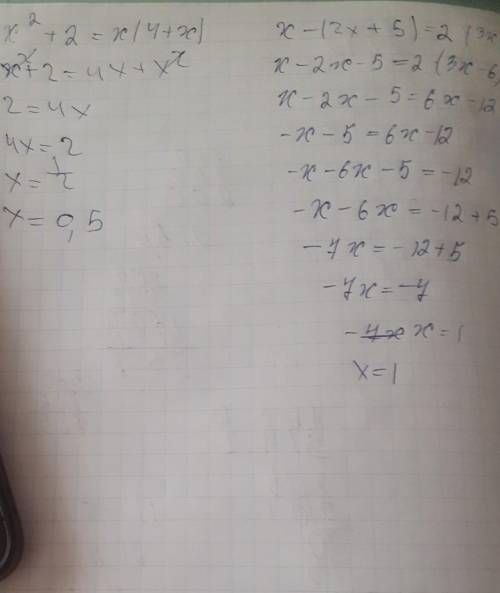 x² + 2 = x(4+x)
x²+2 = 4x + x²
2 = 4x
4x = 2
x = 1/2
x = 0,5
x - (2x + 5) = 2 (3x
x - 2x - 5 = 2 (3x - 6
x - 2x - 5 = 6x - 12
-x - 5 = 6x - 12
-x - 6x - 5 = -12
-x - 6x = -12 + 5
-7x = -12 + 5
-7x = -7
- x = 1
x = 1